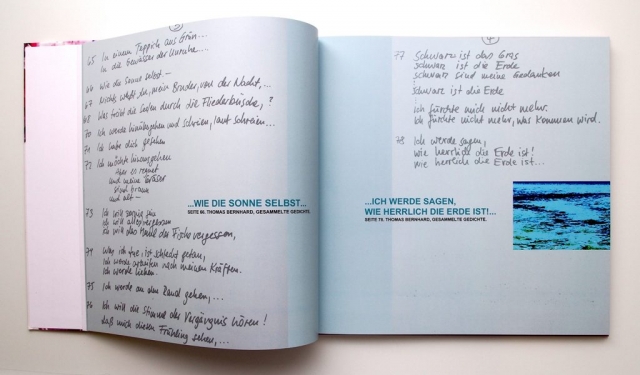 65 In einem Teppich aus Grün...
In die Gewässer der Unruhe....
66 Wie die Sonne selbst –
67 Nichts weißt du, mein Bruder, von der Nacht,...
68 Was treibt die Seelen durch die Fliederbüsche,?
70 Ich werde hinübergehen und schreien, laut schreien...
71 Ich habe dich gesehen
72 Ich möchte hinausgehen
Aber es regnet
und meine Gräser
sind braun
und alt –
73 Ich will zornig sein
Ich will alles vergessen
Ich will das Maul der Fische vergessen,
74 Was ich tue, ist schlecht getan,
Ich werde nach meinen Kräften.
Ich werde lieben.
75 Ich werde an den Rand gehen,...
76 Ich will die Stimme der Vergängnis hören!
daß mich dieser Frühling sehen,...
...WIE DIE SONNE SELBST...
SEITE 66. THOMAS BERNHARD, GESAMMELTE GEDICHTE.
4
77 Schwarz ist das Gras
schwarz ist die Erde
schwarz sind meine Gedanken
Schwarz ist die Erde
Ich fürchte mich nicht mehr.
Ich fürchte nicht mehr, was kommen wird.
78 Ich werde sagen,
wie herrlich die Erde ist!
wie herrlich die Erde ist...
...ICH WERDE SAGEN,
WIE HERRLICH DIE ERDE IST!...
SEITE 78. THOMAS BERNHARD, GESAMMELTE GEDICHTE.